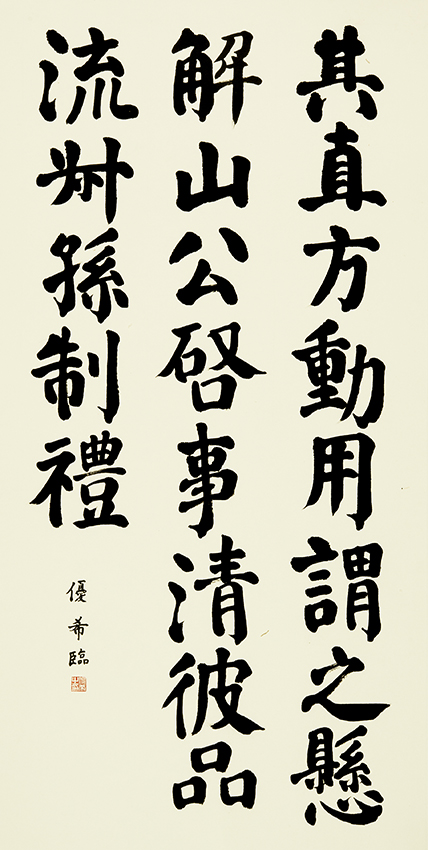 其直方動用謂之懸
解山公啓事清彼品
流叔孫制禮
優希臨